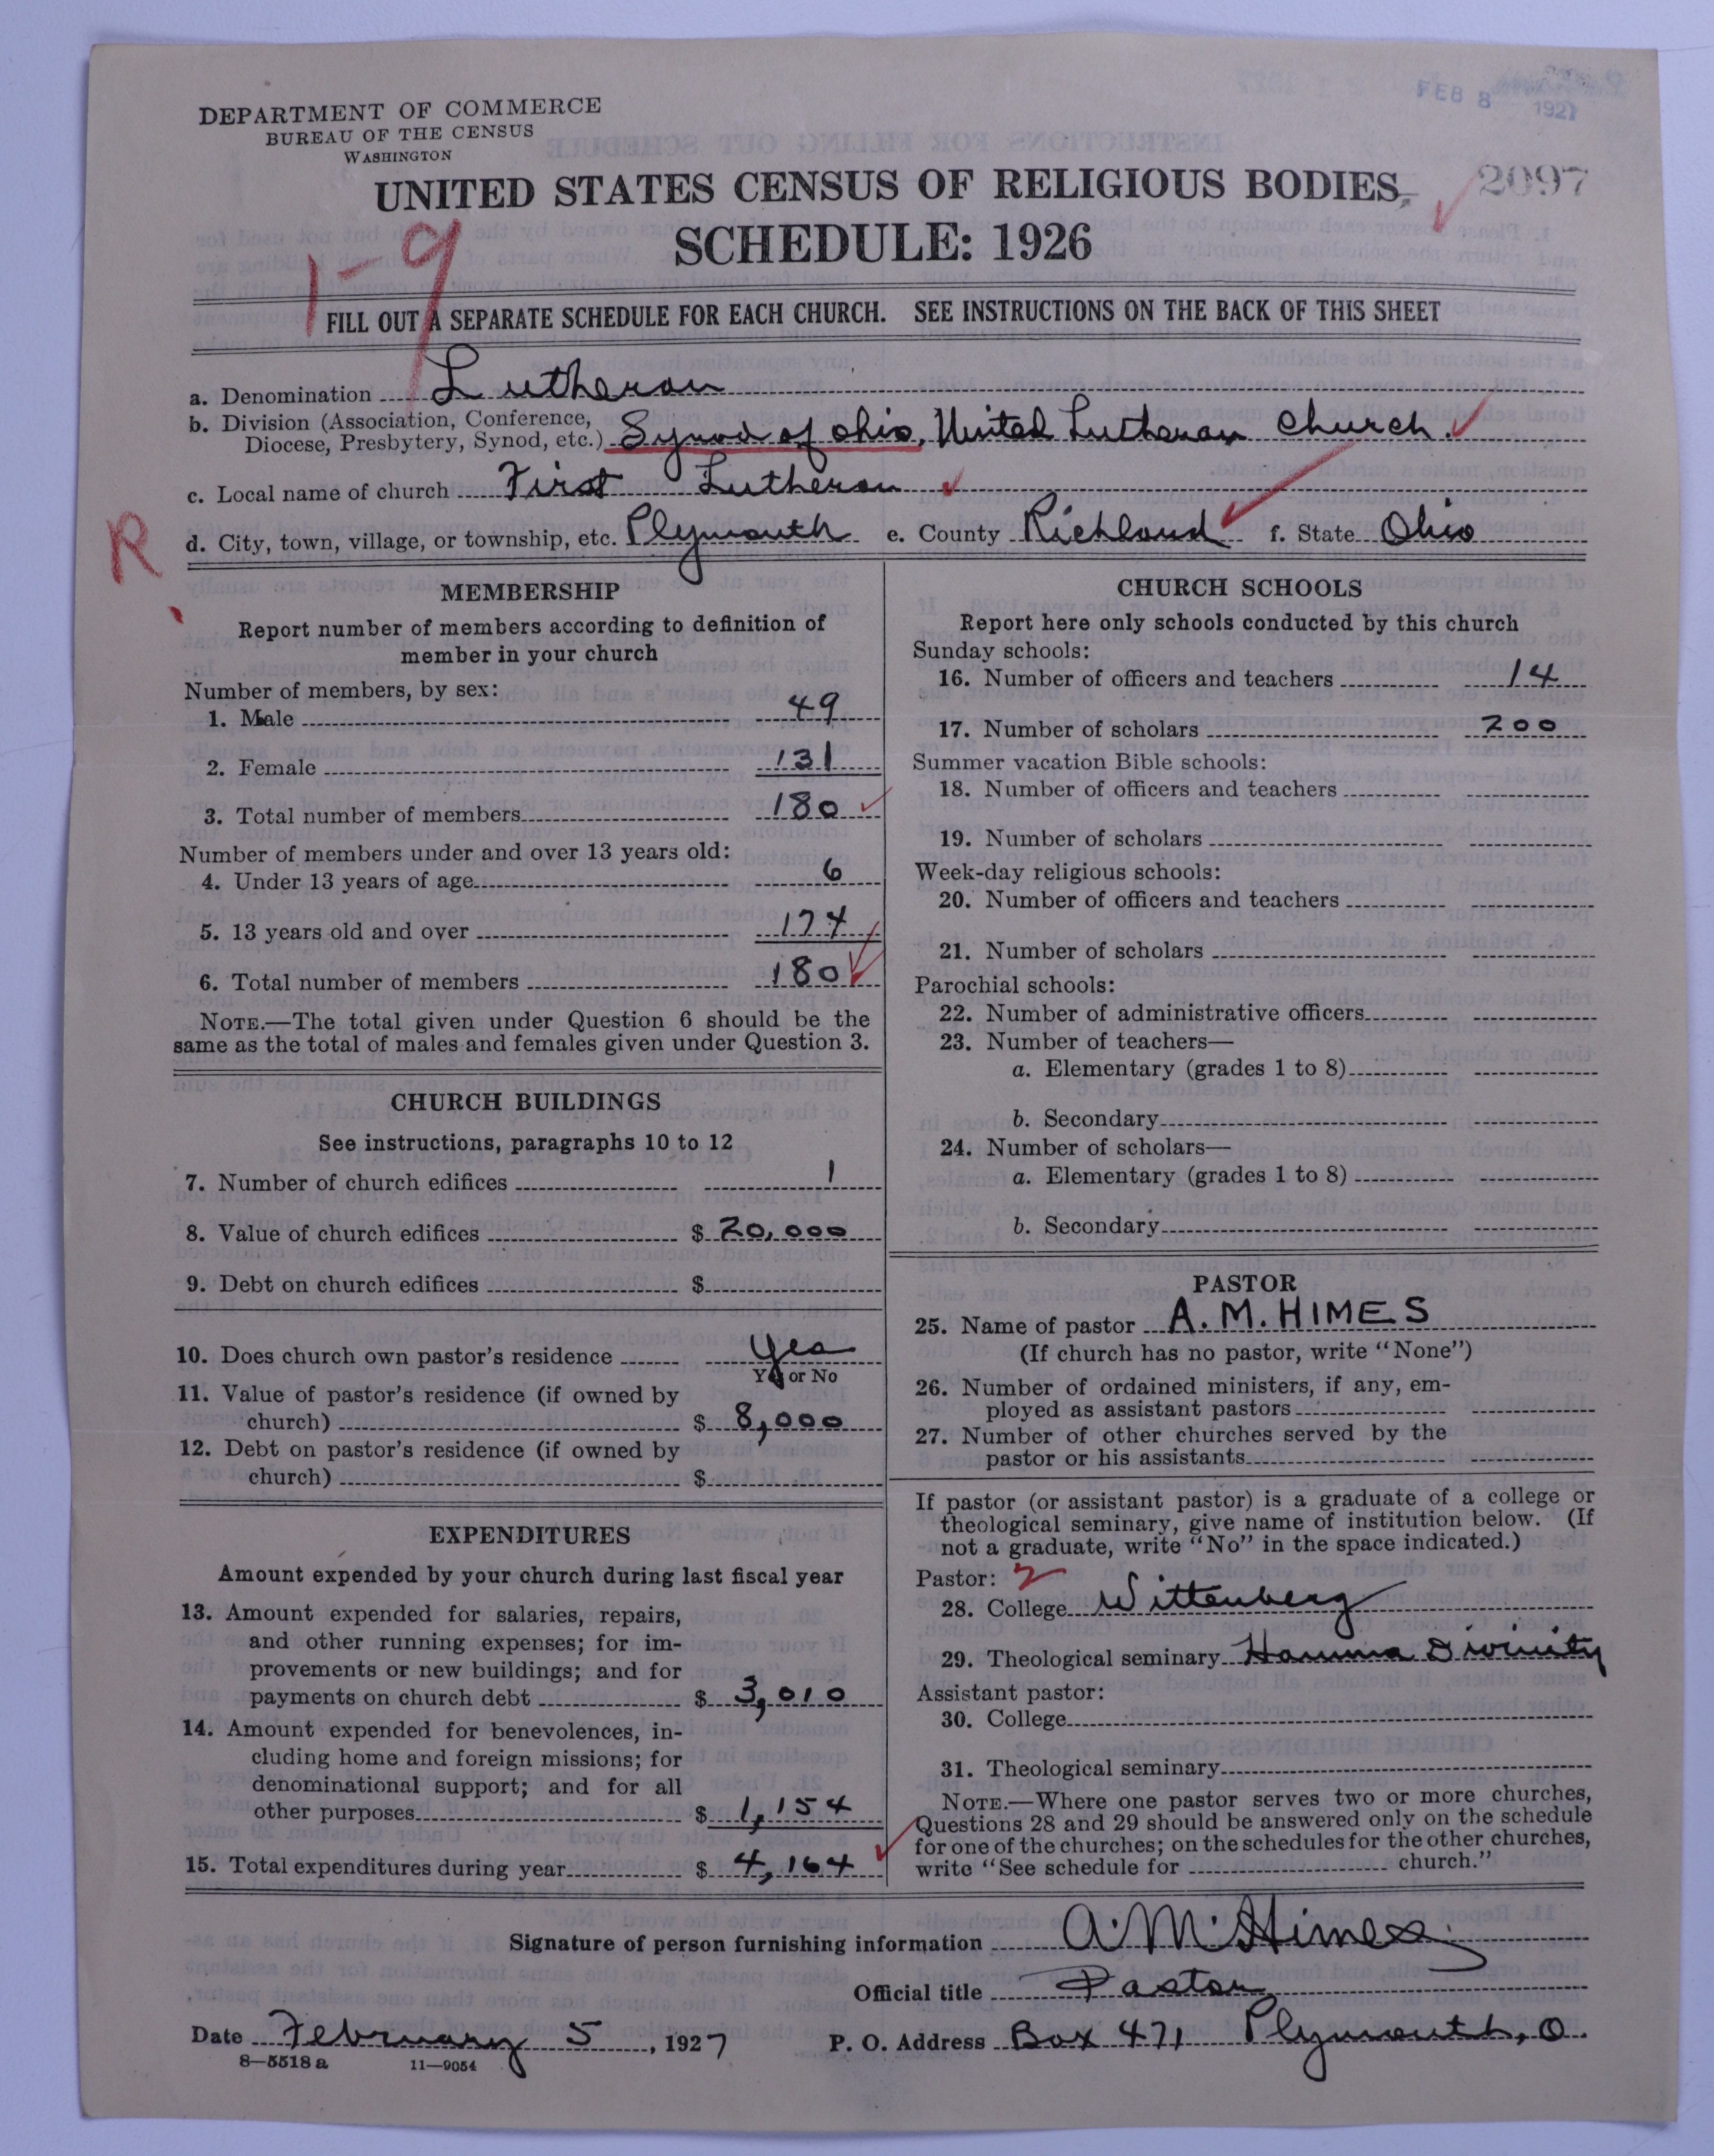 FEB 8 1927
2097
DEPARTMENT OF COMMERCE
BUREAU OF THE CENSUS
WASHINGTON
UNITED STATES CENSUS OF RELIGIOUS BODIES,
SCHEDULE: 1926
1-9
FILL OUT A SEPARATE SCHEDULE FOR EACH CHURCH. SEE INSTRUCTIONS ON THE BACK OF THIS SHEET
a. Denomination Lutheran
b. Division (Association, Conference,
Diocese, Presbytery, Synod, etc.) Synod of Ohio, United Lutheran Church.
c. Local name of church First Lutheran
R
d. City, town, village, or township, etc. Plymouth e. County Richland f. State Ohio
MEMBERSHIP
Report number of members according to definition of
member in your church
Number of members, by sex:
1. Male 49
2. Female 131
3. Total number of members 180
Number of members under and over 13 years old:
4. Under 13 years of age 6
5. 13 years old and over 174
6. Total number of members 180
NOTE.—The total given under Question 6 should be the
same as the total of males and females given under Question 3.
CHURCH BUILDINGS
See instructions, paragraphs 10 to 12
7. Number of church edifices 1
8. Value of church edifices $ 20,000
9. Debt on church edifices $
10. Does church own pastor's residence Yes
Yes or No
11. Value of pastor's residence (if owned by
church) $ 8,000
12. Debt on pastor's residence (if owned by
church) $
EXPENDITURES
Amount expended by your church during last fiscal year
13. Amount expended for salaries, repairs,
and other running expenses; for im-
provements or new buildings; and for
payments on church debt $ 3,010
14. Amount expended for benevolences, in-
cluding home and foreign missions; for
denominational support; and for all
other purposes $ 1,154
15. Total expenditures during year $ 4,164
CHURCH SCHOOLS
Report here only schools conducted by this church
Sunday schools:
16. Number of officers and teachers 14
17. Number of scholars 200
Summer vacation Bible schools:
18. Number of officers and teachers
19. Number of scholars
Week-day religious schools:
20. Number of officers and teachers
21. Number of scholars
Parochial schools:
22. Number of administrative officers
23. Number of teachers—
a. Elementary (grades 1 to 8)
b. Secondary
24. Number of scholars—
a. Elementary (grades 1 to 8)
b. Secondary
PASTOR
25. Name of pastor A. M. HIMES
(If church has no pastor, write "None")
26. Number of ordained ministers, if any, em-
ployed as assistant pastors
27. Number of other churches served by the
pastor or his assistants
If pastor (or assistant pastor) is a graduate of a college or
theological seminary, give name of institution below. (If
not a graduate, write "No" in the space indicated.)
Pastor: 2
28. College Wittenberg
29. Theological seminary Hamma Divinity
Assistant pastor:
30. College
31. Theological seminary
NOTE.—Where one pastor serves two or more churches,
Questions 28 and 29 should be answered only on the schedule
for one of the churches; on the schedules for the other churches,
write "See schedule for church."
Signature of person furnishing information A. M. Himes
Official title Pastor
Date February 5, 1927 P. O. Address Box 471 Plymouth, O.
8—5518 a 11—9054